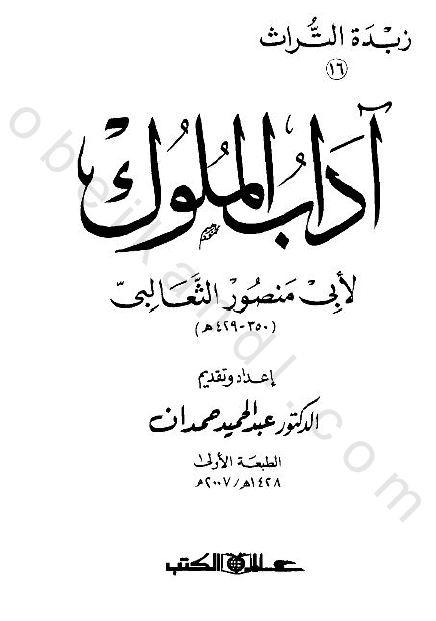 زبْدَة التُّراث
١٦
آدَابُ المُلُوك
لأبِى مَنصُور الثَّعَالِبىّ
(٣٥٠-٤٢٩هـ)
إعداد وتقديم
الدكتور عبد الحميد حمدان
الطبعة الأولى
١٤٢٨هـ/٢٠٠٧م
عالم الكتب
obeikandl.com